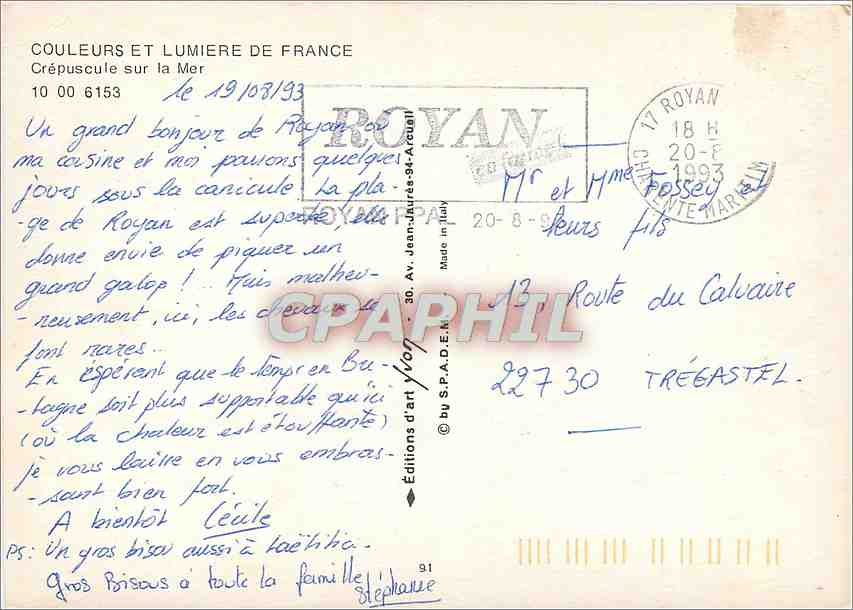 COULEURS ET LUMIERE DE FRANCE
Crépuscule sur la Mer
10 00 6153
le 19/08/93
Un grand bonjour de Royan où
ma cousine et moi passons quelques
jours sous la canicule. La pla-
-ge de Royan est superbe, elle
donne envie de piquer un
grand galop! .. Mais malheu-
-reusement, ici, les chevaux se
font rares...
En espérant que le temps en Bre-
-tagne soit plus supportable qu'ici
(où la chaleur est étouffante)
je vous laisse en vous embras-
-sant bien fort.
A bientôt Cécile
PS: Un gros bisou aussi à Laëtitia.
Gros Bisous à toute la famille
Stéphanie
ROYAN
ROYAN PPAL 20-8-9
17 ROYAN
18 H
20-8
1993
CHARENTE-MARITIM
Mr et Mme Fossey et
leurs fils
13, Route du Calvaire
22730 TRÉGASTEL.
Éditions d'art Yvon - 30. Av. Jean-Jaurès-94-Arcueil
© by S.P.A.D.E.M. Made in Italy
91
CPAPHIL